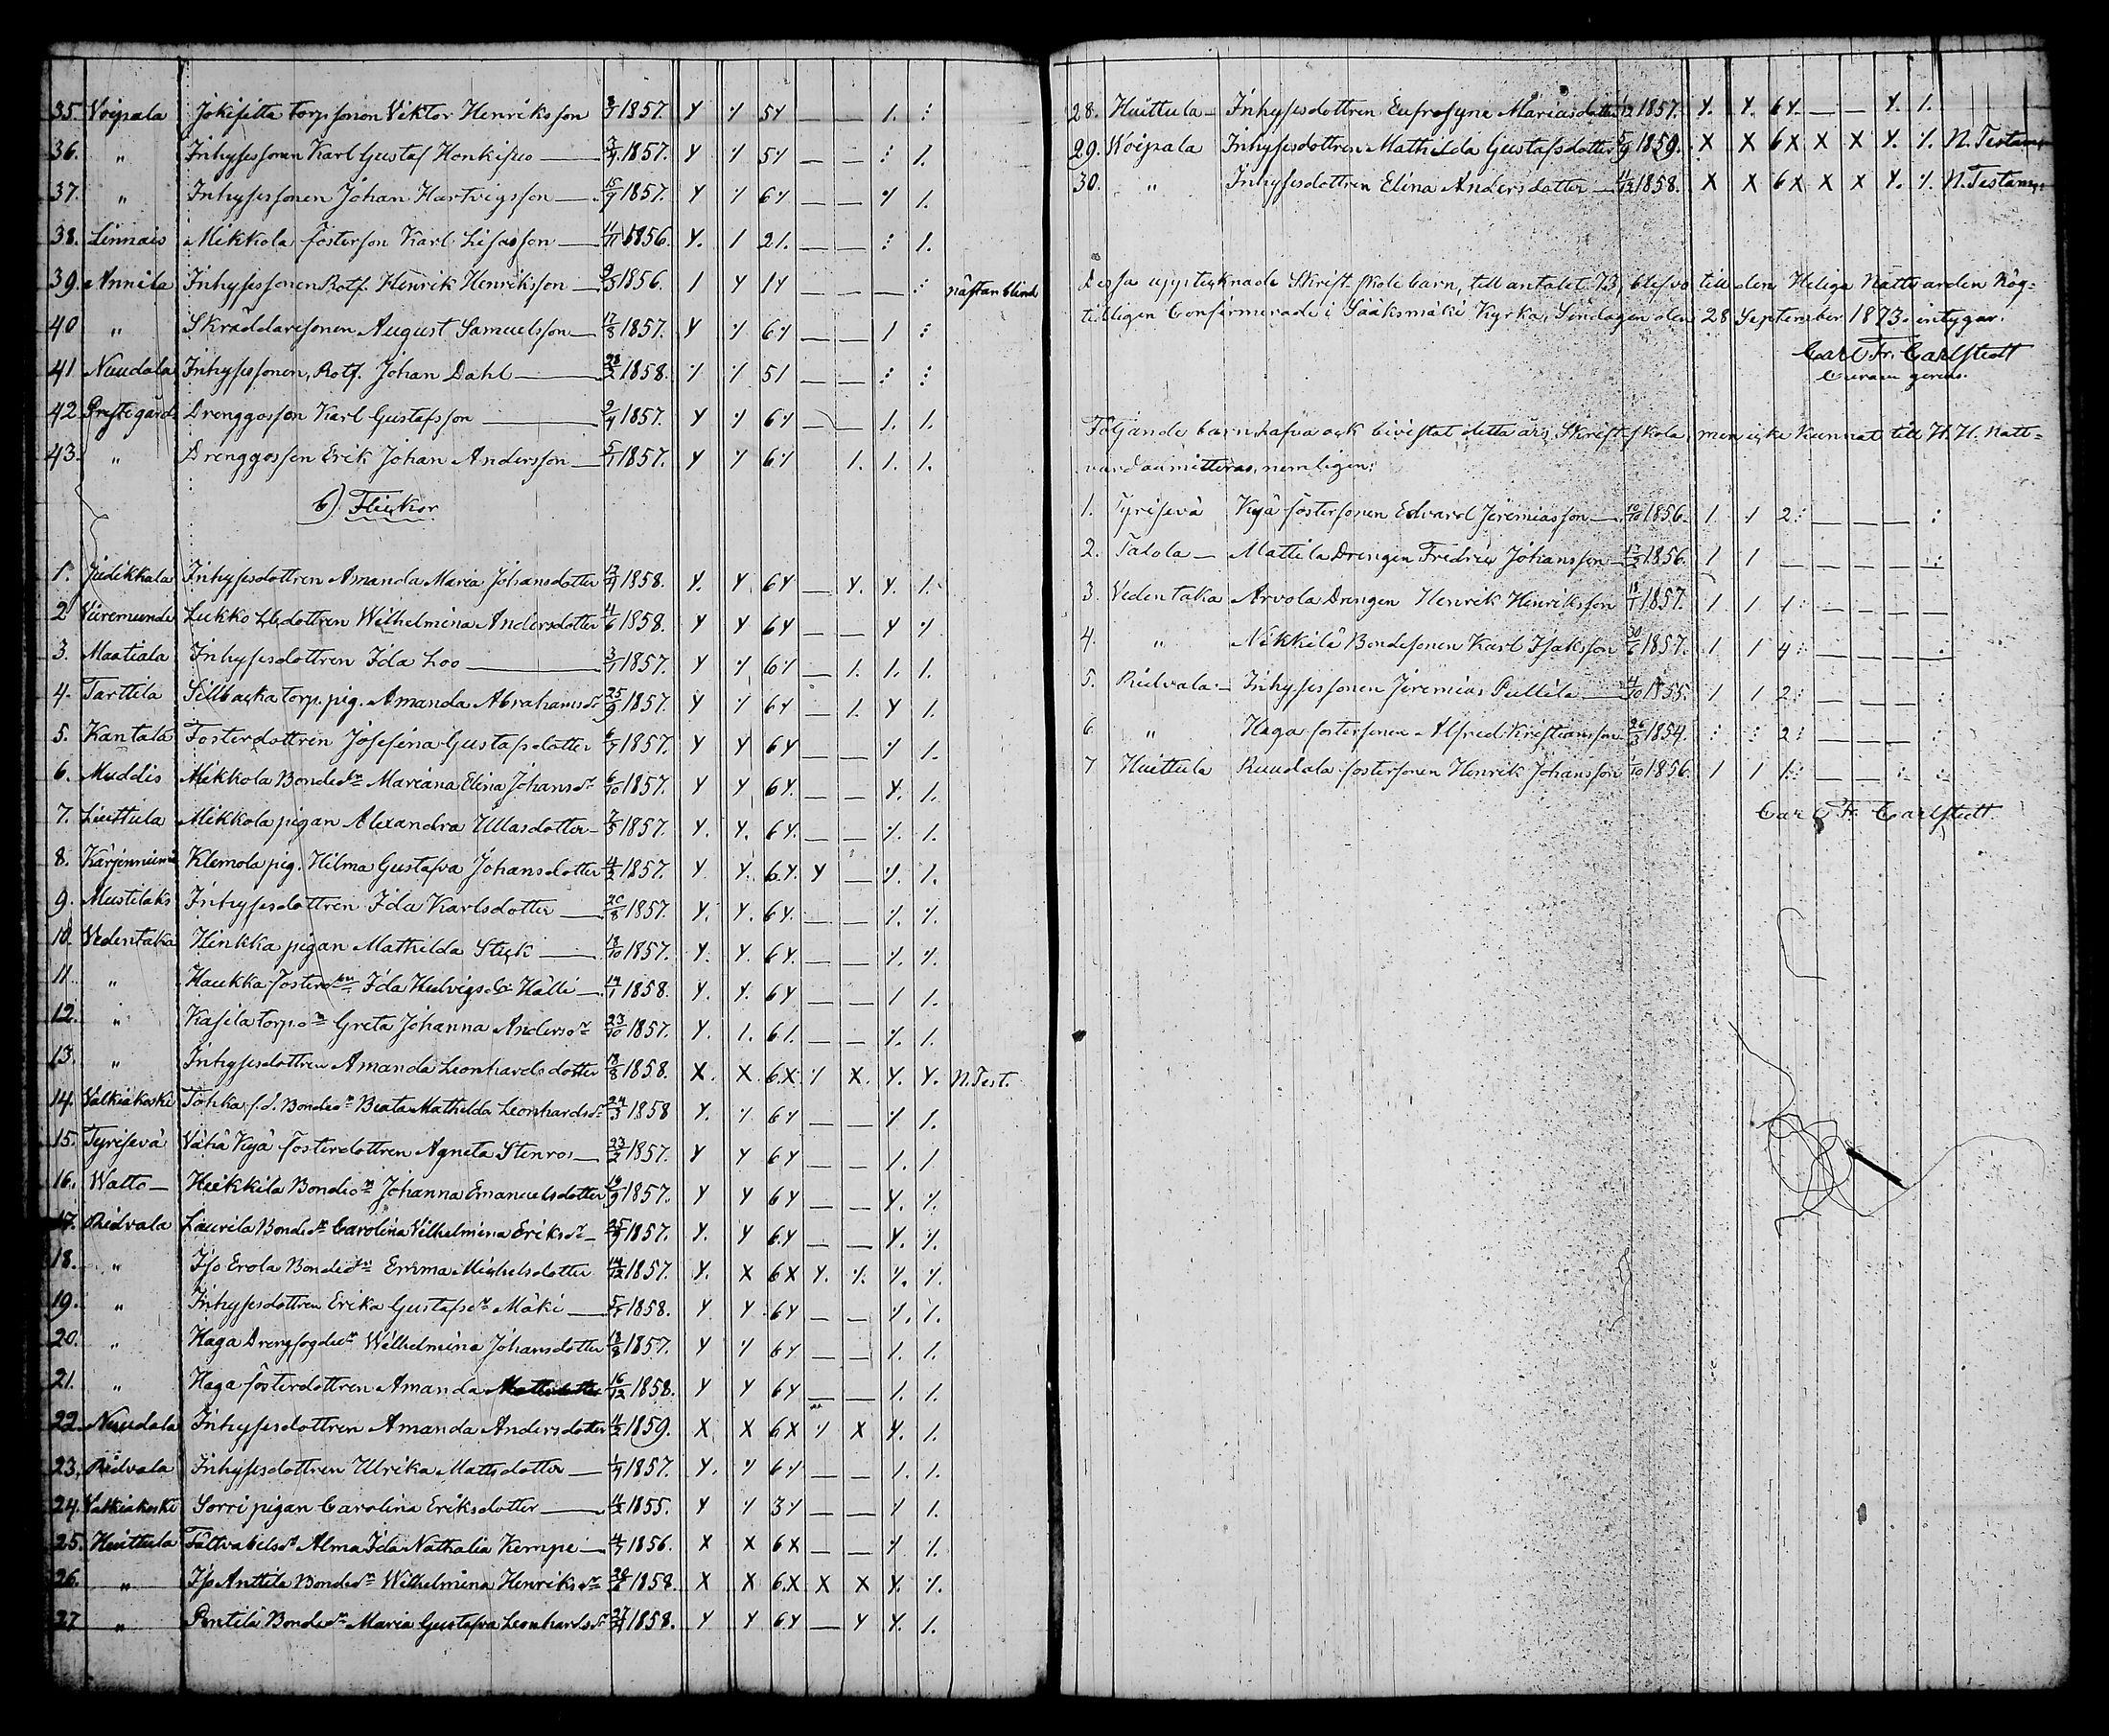 35. Voipala Jokisilta torpsonon Viktor Henriksson 1857. Y ٪ 5Y — — 1. :
36. " Inhysessonen Karl Gustaf Honkisuo — 1857. Y ٪ 5٪ — — : 1.
37. " Inhysessonen Johan Hartvigsson — 15/9 1857. Y ٪ 6٪ — — ٪ 1.
38. Linnais Mikkola fosterson Karl Lisasson — 1856. Y. 1 21. — — : 1.
39. Annila Inhysessonen Rotf. Henrik Henriksson — 1856. 1 Y 1Y — — — : nästan blind
40 " Skräddaresonen August Samuelsson — 17/8 1857. Y ٪ 6٪ — — 1 :
41 Nuudala Inhysessonen, Rotf. Johan Dahl — 28/2 1858. ٪ ٪ 51 — — : :
42 Prestegård Drenggosson Karl Gustafsson — 9/4 1857. Y ٪ 6٪ — — 1. 1.
43. " Drenggosson Erik Johan Andersson — 5/1 1857. Y ٪ 6٪ 1. 1. 1.
b) Flickor
1. Judikkala Inhysesdottren Amanda Maria Johansdotter 1858. Y. Y 6Y — Y. Y. 1.
2 Viiremunde Lukko Lbdottren Wilhelmina Andersdotter 4/6 1858. Y Y 6Y — — Y ٪
3. Maatiala Inhysesdottren Ida Loo — 3/1 1857. Y ٪ 6٪ — 1. 1. 1.
4. Tarttila Sillbacka torp.pig. Amanda Abrahamsdr 25/9 1857. Y ٪ 6Y — 1. Y 1.
5. Kantala Fosterdottren Josefina Gustafsdotter 1857. Y Y 6Y — — ٪ 1.
6. Muddis Mikkola Bondedn Mariana Elina Johansdr 6/10 1857. Y Y 6Y. — — Y. 1.
7. Liuttula Mikkola pigan Alexandra Ullasdotter — 1857. Y. Y. 6Y. — — ٪. 1.
8. Kärjenniemi Klemola pig. Hilma Gustafva Johansdotter 1857. Y. Y. 6.Y. Y — ٪. 1.
9. Mustilaks Inhysesdottren Ida Karlsdotter — 20/8 1857. Y. Y. 6Y. — — ٪. ٪.
10. Vedentaka Hinkka pigan Mathilda Stick — 18/10 1857. Y. Y. 6Y. — — ٪. ٪.
11. " Haukka fosterdtn Ida Hedvigsdr Hälli — 14/1 1858. Y. Y. 6Y — — 1 1.
12. " Kasila torpdn Greta Johanna Andersdr 23/10 1857. Y. 1. 61. — — ٪. 1.
13. " Inhysesdottren Amanda Leonhardsdotter 18/8 1858. X. X. 6.X ٪ X. Y. Y. N. Test.
14. Valkiakoski Tohka f.d. Bondedn Beata Mathilda Leonhardsdr 24/3 1858 Y. ٪ 6٪ — — ٪ 1.
15. Tyrisevä Vähä Kyä fosterdottren Agneta Stenros — 23/2 1857. Y Y 6Y — — 1. 1
16. Watto — Heikkilä Bondedn Johanna Emanuelsdotter 19/9 1857. Y Y 6Y — — Y. ٪.
17. Ridvala Laurila Bondedn Carolina Vilhelmina Eriksdr — 25/9 1857. Y. Y 6.Y — — Y. ٪.
18. " Iso Erola Bondedtn Emma Michelsdotter 14/12 1857. Y. X 6X Y. ٪. ٪. ٪.
19. " Inhysesdottren Erika Gustafsdr Mäki — 1858. Y Y 6Y — — ٪. 1.
20. " Haga Drengfogdedn Wilhelmina Johansdotter 18/8 1857. Y ٪ 6Y — — 1. 1.
21. " Haga fosterdottren Amanda Mattsdotter 16/12 1858. Y Y 6Y — — 1. 1.
22. Nuudala Inhysesdottren Amanda Andersdotter 4/2 1859. X X 6X ٪ X Y. 1.
23. Ridvala Inhysesdottren Ulrika Mattsdotter — 1857. Y. ٪ 6٪ — — 1. 1.
24. Valkiakoski Sorri pigan Carolina Eriksdotter — 1855. Y ٪ 3٪ — — ٪ 1.
25. Huittula Fältväbelsdr Alma Ida Nathalia Kempe — 1856. X X 6X — — ٪ ٪.
26. " Iso Anttila Bondedn Wilhelmina Henriksdr 1858. X X 6.X X X Y. ٪.
27 " Pentilä Bondedn Maria Gustafva Leonhardsdr 1858. Y Y 6Y — Y Y. 1.
28. Huittula — Inhysesdottren Eufrosyne Mariasdotter 1857. Y. Y. 6Y. — — Y. 1.
29. Woipala Inhysesdottren Mathilda Gustafsdotter 5/9 1859. X X 6X X X Y. ٪. N. Testam
30. " Inhysesdottren Elina Andersdotter — 11/12 1858. X X 6X X X Y. ٪. N. Testam.
Dessa upptecknade Skriftskolebarn, till antalet 73, blefvo till den Heliga Nattvarden hög-
tidligen Confirmerade i Sääksmäki Kyrka, Söndagen den 28 September 1873. intygar.
Carl Fr. Carlstedt
Curam gerens.
Följande barn hafva ock bivistat detta års Skriftskola, men icke kunnat till H. H. Natt-
vard admitteras, nemligen:
1. Tyrisevä Kyä fostersonen Edvard Jeremiasson — 1856. 1 ٪ 2: — — — :
2. Tatola — Mattila Drengen Fredric Johansson — 1856. 1 1 — — — — :
3. Vedentaka Arvola Drengen Henrik Henriksson 18/1 1857. 1 1 1: — — — —
4. " Nikkilä Bondesonen Karl Isaksson 30/6 1857. 1 1 4: — — — :
5. Ridvala — Inhysessonen Jeremias Pullila — 4/10 1855. 1 1 2: — — — :
6 " Haga fostersonen Alfred Kristiansson 26/3 1854. : : 2: — — — :
7 Huittula Ruudala fostersonen Henrik Johansson 1/10 1856. 1 1 1: — — : :
Carl Fr. Carlstedt.